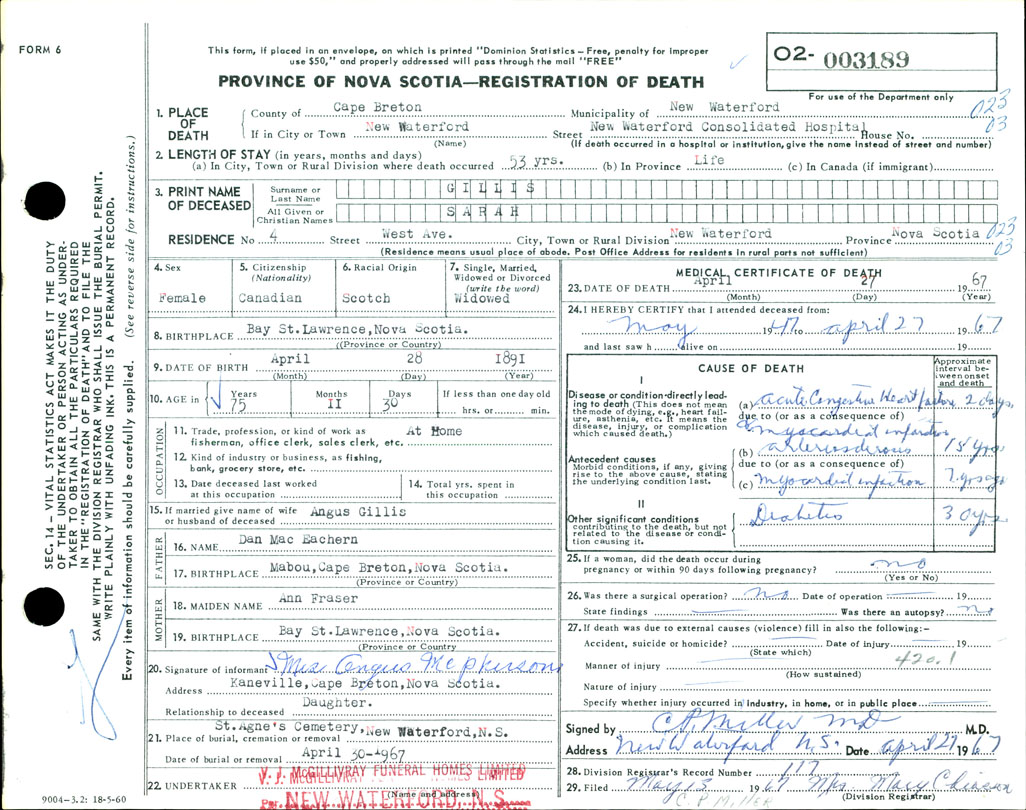 FORM 6
This form, if placed in an envelope, on which is printed "Dominion Statistics – Free, penalty for improper
use $50," and properly addressed will pass through the mail "FREE"
PROVINCE OF NOVA SCOTIA—REGISTRATION OF DEATH
O2- 003189
For use of the Department only
SEC. 14 – VITAL STATISTICS ACT MAKES IT THE DUTY
OF THE UNDERTAKER OR PERSON ACTING AS UNDER-
TAKER TO OBTAIN ALL THE PARTICULARS REQUIRED
IN THE "REGISTRATION OF DEATH" AND TO FILE THE
SAME WITH THE DIVISION REGISTRAR WHO SHALL ISSUE THE BURIAL PERMIT.
WRITE PLAINLY WITH UNFADING INK. THIS IS A PERMANENT RECORD.
Every item of information should be carefully supplied. (See reverse side for instructions.)
1. PLACE OF DEATH
County of Cape Breton Municipality of New Waterford 023
If in City or Town New Waterford Street New Waterford Consolidated Hospital House No. 03
(Name) (If death occurred in a hospital or institution, give the name instead of street and number)
2. LENGTH OF STAY (in years, months and days)
(a) In City, Town or Rural Division where death occurred 53 yrs. (b) In Province Life (c) In Canada (if immigrant)
3. PRINT NAME OF DECEASED
Surname or Last Name GILLIS
All Given or Christian Names SARAH
RESIDENCE No 4 Street West Ave. City, Town or Rural Division New Waterford Province Nova Scotia 023
(Residence means usual place of abode. Post Office Address for residents in rural parts not sufficient) 03
4. Sex
Female
5. Citizenship
(Nationality)
Canadian
6. Racial Origin
Scotch
7. Single, Married,
Widowed or Divorced
(write the word)
Widowed
8. BIRTHPLACE Bay St.Lawrence, Nova Scotia.
(Province or Country)
9. DATE OF BIRTH April 28 1891
(Month) (Day) (Year)
10. AGE in Years Months Days If less than one day old
75 11 30 hrs. or min.
OCCUPATION
11. Trade, profession, or kind of work as At Home
fisherman, office clerk, sales clerk, etc.
12. Kind of industry or business, as fishing,
bank, grocery store, etc.
13. Date deceased last worked
at this occupation
14. Total yrs. spent in
this occupation
15. If married give name of wife
or husband of deceased Angus Gillis
FATHER
16. NAME Dan Mac Eachern
17. BIRTHPLACE Mabou, Cape Breton, Nova Scotia.
(Province or Country)
MOTHER
18. MAIDEN NAME Ann Fraser
19. BIRTHPLACE Bay St.Lawrence, Nova Scotia.
(Province or Country)
20. Signature of informant Mrs Angus McPherson
Address Kaneville, Cape Breton, Nova Scotia.
Relationship to deceased Daughter.
St.Agne's Cemetery, New Waterford, N.S.
21. Place of burial, cremation or removal
Date of burial or removal April 30-1967
22. UNDERTAKER V. J. McGILLIVRAY FUNERAL HOMES LIMITED
(Name and address)
Per NEW WATERFORD, N.S.
MEDICAL CERTIFICATE OF DEATH
23. DATE OF DEATH April 27 1967
(Month) (Day) (Year)
24. I HEREBY CERTIFY that I attended deceased from:
May 1947 to april 27 1967
and last saw h alive on 19
CAUSE OF DEATH
Approximate
interval be-
tween onset
and death
I
Disease or condition directly lead-
ing to death (This does not mean
the mode of dying, e.g., heart fail-
ure, asthenia, etc. It means the
disease, injury, or complication
which caused death.)
(a) Acute Congestive Heart failure 2 days.
due to (or as a consequence of)
myocardial infarction
Antecedent causes
Morbid conditions, if any, giving
rise to the above cause, stating
the underlying condition last.
(b) arteriosclerosis 15 yrs
due to (or as a consequence of)
(c) myocardial infarction 7 yrs ago
II
Other significant conditions
contributing to the death, but not
related to the disease or condi-
tion causing it.
Diabetes 30 yrs
25. If a woman, did the death occur during
pregnancy or within 90 days following pregnancy? no
(Yes or No)
26. Was there a surgical operation? no Date of operation 19
State findings Was there an autopsy? no
27. If death was due to external causes (violence) fill in also the following:–
Accident, suicide or homicide? Date of injury 19
(State which) 420.1
Manner of injury
(How sustained)
Nature of injury
Specify whether injury occurred in industry, in home, or in public place
Signed by C P. Miller MD M.D.
Address New Waterford N.S. Date april 27 1967
28. Division Registrar's Record Number 117
29. Filed May 15 1967 Mrs Mary
(Division Registrar)
C. P. Miller
9004-3.2: 18-5-60